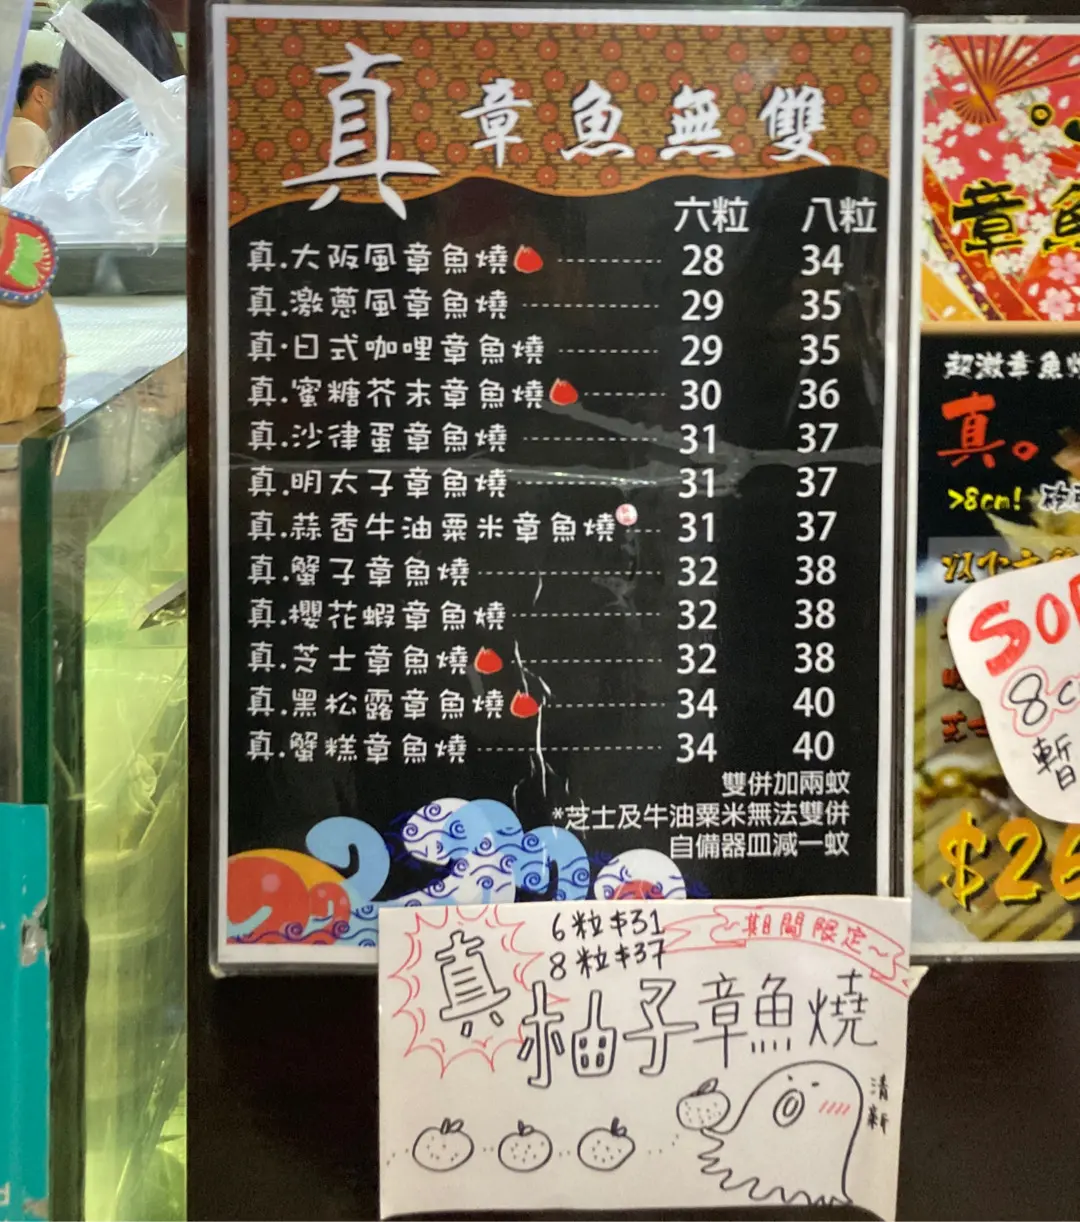 真 章魚無雙
六粒 八粒
真.大阪風章魚燒 28 34
真.激蔥風章魚燒 29 35
真.日式咖哩章魚燒 29 35
真.蜜糖芥末章魚燒 30 36
真.沙律蛋章魚燒 31 37
真.明太子章魚燒 31 37
真.蒜香牛油粟米章魚燒 31 37
真.蟹子章魚燒 32 38
真.櫻花蝦章魚燒 32 38
真.芝士章魚燒 32 38
真.黑松露章魚燒 34 40
真.蟹糕章魚燒 34 40
雙併加兩蚊
*芝士及牛油粟米無法雙併
自備器皿減一蚊
6粒$31
8粒$37
期間限定
真 柚子章魚燒
清新
章魚
超激章魚燒
真。
>8cm!
8c
暫
$26